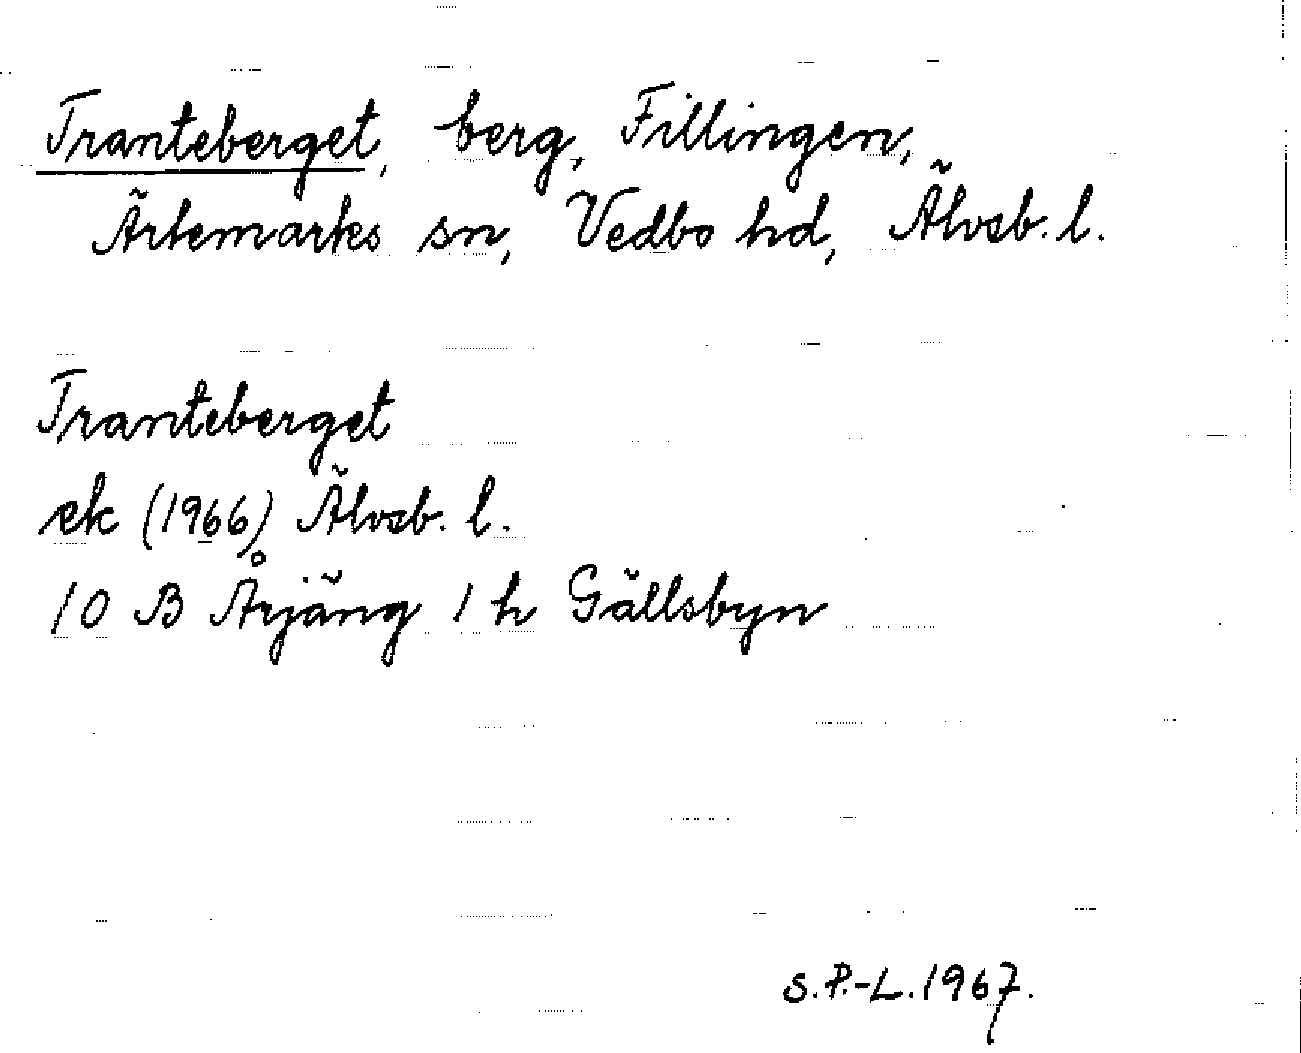 Tranteberget, berg, Fillingen,
Ärtemarks sn, Vedbo hd, Älvsb. l.
Tranteberget
ek (1966) Älvsb. l.
10 B Årjäng 1 h Gällsbyn
S.P.-L. 1967.